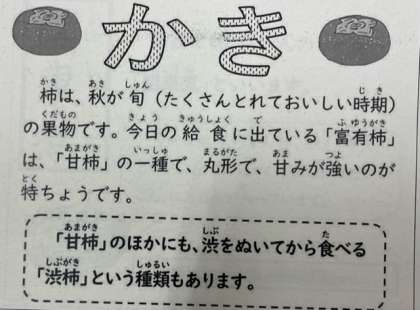 かき
柿は、秋が旬（たくさんとれておいしい時期）
の果物です。今日の給食に出ている「富有柿」
は、「甘柿」の一種で、丸形で、甘みが強いのが
特ちょうです。
「甘柿」のほかにも、渋をぬいてから食べる
「渋柿」という種類もあります。